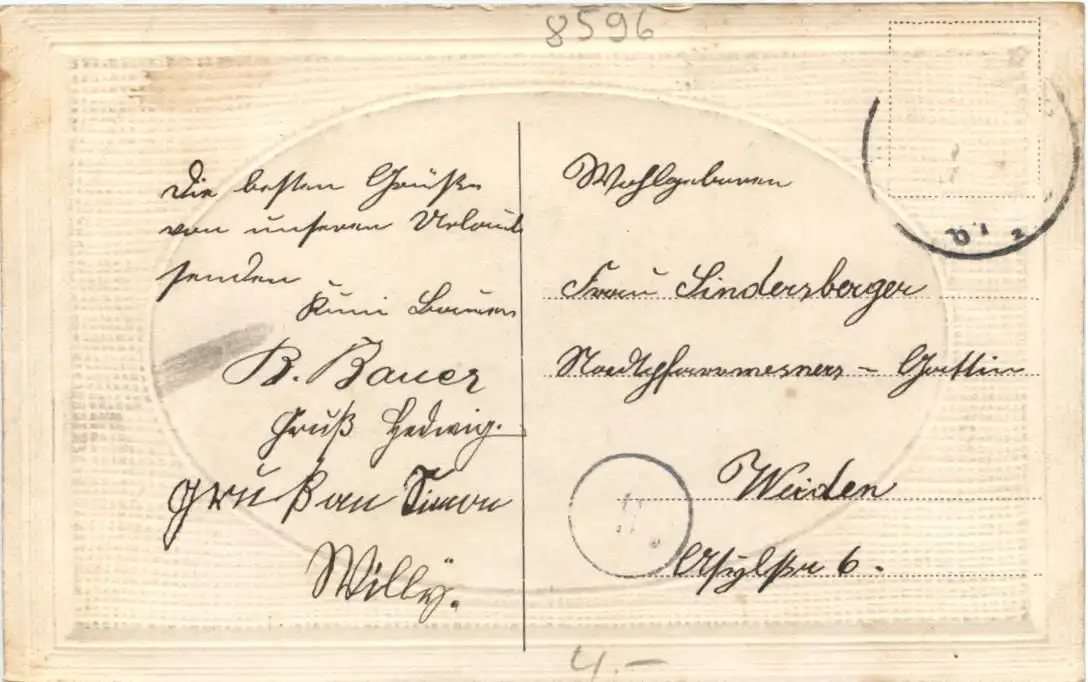 8596
Die besten Grüße
von unserem Urlaub
senden
Kuni Bauer
B. Bauer
Gruß Hedwig.
Gruß an Simon
Willy.
Wohlgeboren
Frau Lindersberger
Stadtpfarrmesners - Gattin
Weiden
Asylstr 6.
4.-